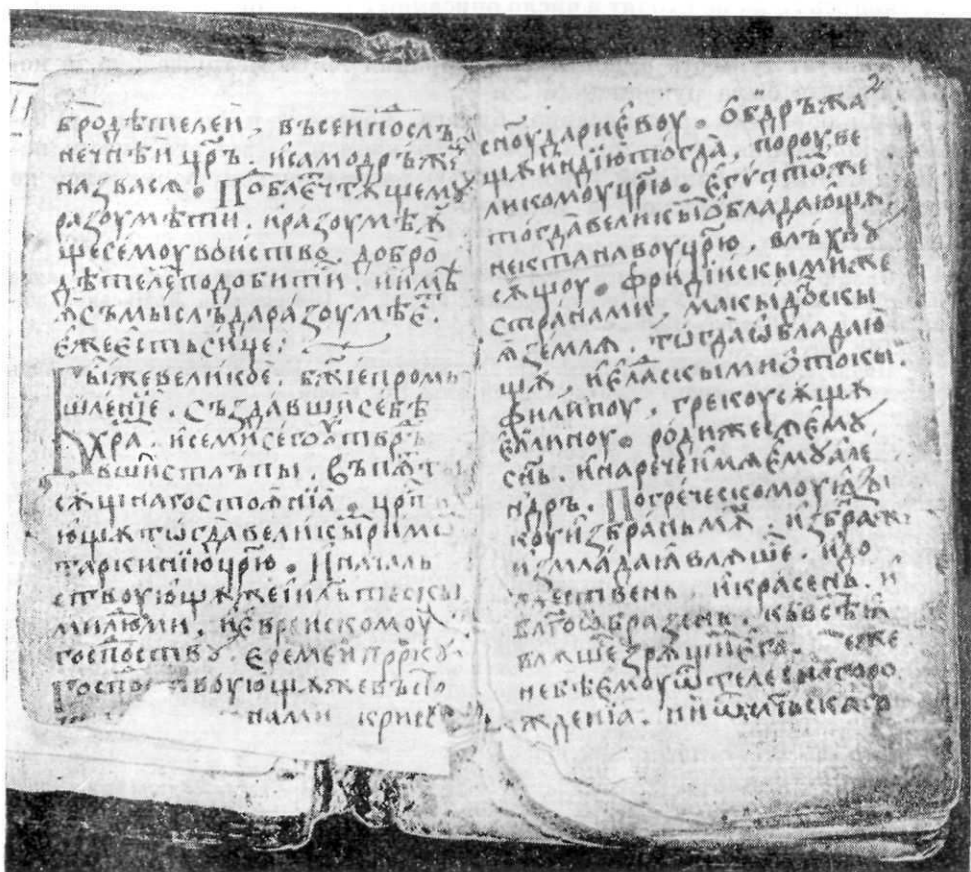 бродѣтелей, въсей послѣ
нечнѣй цр҃ъ. и самодръжⷰ
назвася. Поⷣблеⷭ҇чтѫщемꙋ
разоумѣти. и разоумѣѫ
ще семоу воинство. доброⷣ
дѣтелеⷨ подобити. и имѣ
ѫ съмыслъ да разоумѣеⷮ.
еже есть сице:
Бы же великое, бж҃іе промы
шленїе. създавши себѣ
хра. и семи сего утвръ
вши стлъпы. въ пѧт
сѫщї на го стоѧнїа. црⷭ҇т
юща тѡгда великы римѡ
таркинїю цр҃ю. И началь
ствоующѫ же
ми людми. и еврейскомоу
господствꙋ. Еремеи прⷪ҇ркꙋ
господствоующѫ же въсто
нами криве
2
сн҃оу дарїевоу. Обдръжа
щѫ индїю тогда, пороу ве
ликомоу цр҃ю. Егѵптоⷨ же
тогда великыⷨ обладающѫ.
нектанавоу цр҃ю, влъхвꙋ
сѫщоу. Фридїискыми же
странами, макыдоⷩскы
ѫ землѧ. тогда ѡбладаю
щѫ, и елаⷣскыми ѿтокы.
филипоу, грекоу сѫщѫ
елиноу. роди же сѧ емꙋ
сн҃ъ. и нарече имѧ емꙋ але
нⷣдръ. По греческомоу ѧзы
коу избранъ мѫⷤ. избраⷩ же
измлада ꙗвлѧше. и до
ж ственъ и красенъ. и
благоѡбразенъ. къ всѣⷨ ꙗ
влѧше зрѧщиⷨ его. Се же
не бѣ емоу ѿ телеснаго ро
жденїа. ни ѿ ск аго